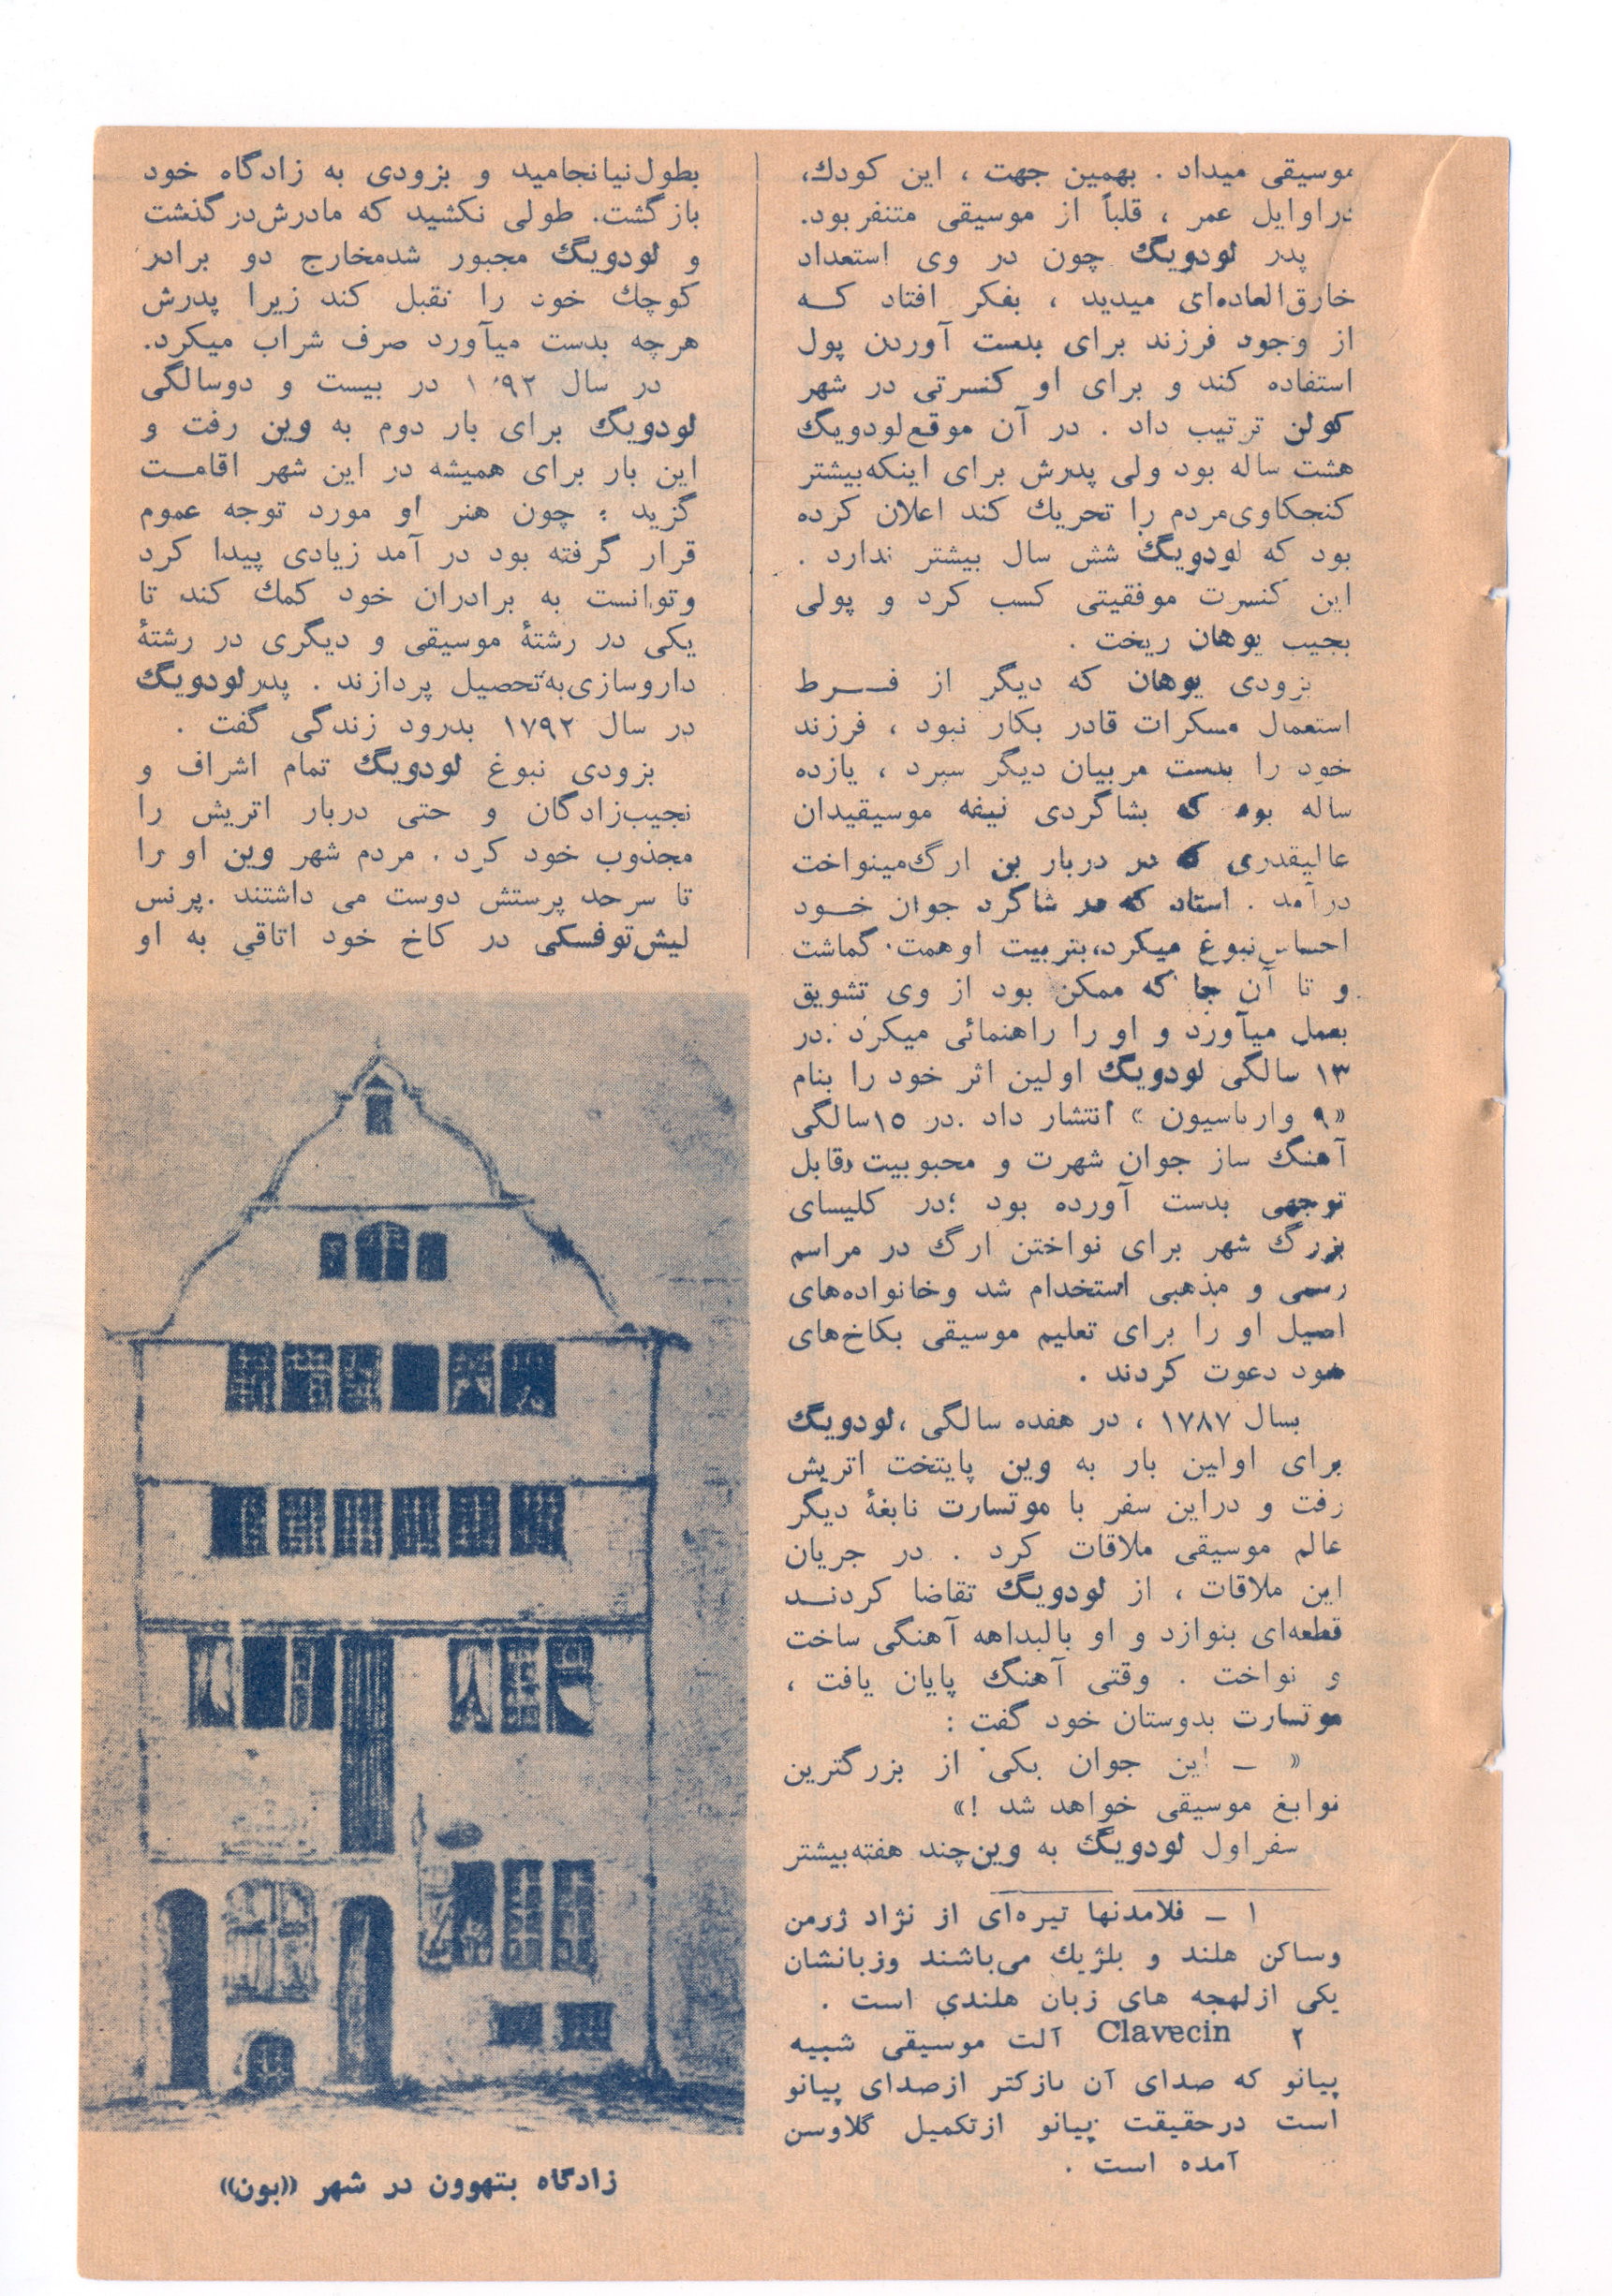 موسیقی میداد . بهمین جهت ، این کودك،
دراوایل عمر ، قلباً از موسیقی متنفر بود.
پدر لودویگ چون در وی استعداد
خارق‌العاده‌ای میدید ، بفکر افتاد کـه
از وجود فرزند برای بدست آوردن پول
استفاده کند و برای او کنسرتی در شهر
کولن ترتیب داد . در آن موقع لودویگ
هشت ساله بود ولی پدرش برای اینکه بیشتر
کنجکاوی مردم را تحریك کند اعلان کرده
بود که لودویگ شش سال بیشتر ندارد .
این کنسرت موفقیتی کسب کرد و پولی
بجیب یوهان ریخت .
بزودی یوهان که دیگر از فـرط
استعمال مسکرات قادر بکار نبود ، فرزند
خود را بدست مربیان دیگر سپرد ، یازده
ساله بود که بشاگردی نیفه موسیقیدان
عالیقدری که در دربار بن ارگ مینواخت
درآمد . استاد که در شاگرد جوان خـود
احساس نبوغ میکرد، بتربیت او همت گماشت
و تا آن جا که ممکن بود از وی تشویق
بعمل میآورد و او را راهنمائی میکرد . در
۱۳ سالگی لودویگ اولین اثر خود را بنام
«۹ واریاسیون » انتشار داد . در ۱۵ سالگی
آهنگ ساز جوان شهرت و محبوبیت قابل
توجهی بدست آورده بود ؛ در کلیسای
بزرگ شهر برای نواختن ارگ در مراسم
رسمی و مذهبی استخدام شد و خانواده‌های
اصیل او را برای تعلیم موسیقی بکاخ‌های
خود دعوت کردند .
بسال ۱۷۸۷ ، در هفده سالگی ، لودویگ
برای اولین بار به وین پایتخت اتریش
رفت و دراین سفر با موتسارت نابغهٔ دیگر
عالم موسیقی ملاقات کرد . در جریان
این ملاقات ، از لودویگ تقاضا کردنـد
قطعه‌ای بنوازد و او بالبداهه آهنگی ساخت
و نواخت . وقتی آهنگ پایان یافت ،
موتسارت بدوستان خود گفت :
« ـ این جوان یکی از بزرگترین
نوابغ موسیقی خواهد شد !»
سفر اول لودویگ به وین چند هفته بیشتر
۱ ـ فلامدنها تیره‌ای از نژاد ژرمن
وساکن هلند و بلژیك می‌باشند وزبانشان
یکی ازلهجه های زبان هلندی است .
۲ Clavecin آلت موسیقی شبیه
پیانو که صدای آن نازکتر ازصدای پیانو
است درحقیقت پیانو ازتکمیل گلاوسن
آمده است .
بطول نیانجامید و بزودی به زادگاه خود
بازگشت. طولی نکشید که مادرش درگذشت
و لودویگ مجبور شدمخارج دو برادر
کوچك خود را تقبل کند زیرا پدرش
هرچه بدست میآورد صرف شراب میکرد.
در سال ۱۷۹۲ در بیست و دوسالگی
لودویگ برای بار دوم به وین رفت و
این بار برای همیشه در این شهر اقامـت
گزید ؛ چون هنر او مورد توجه عموم
قرار گرفته بود در آمد زیادی پیدا کرد
وتوانست به برادران خود کمك کند تا
یکی در رشتهٔ موسیقی و دیگری در رشتهٔ
داروسازی به تحصیل پردازند . پدر لودویگ
در سال ۱۷۹۲ بدرود زندگی گفت .
بزودی نبوغ لودویگ تمام اشراف و
نجیب‌زادگان و حتی دربار اتریش را
مجذوب خود کرد . مردم شهر وین او را
تا سرحد پرستش دوست می داشتند . پرنس
لیش‌توفسکی در کاخ خود اتاقی به او
زادگاه بتهوون در شهر «بون»